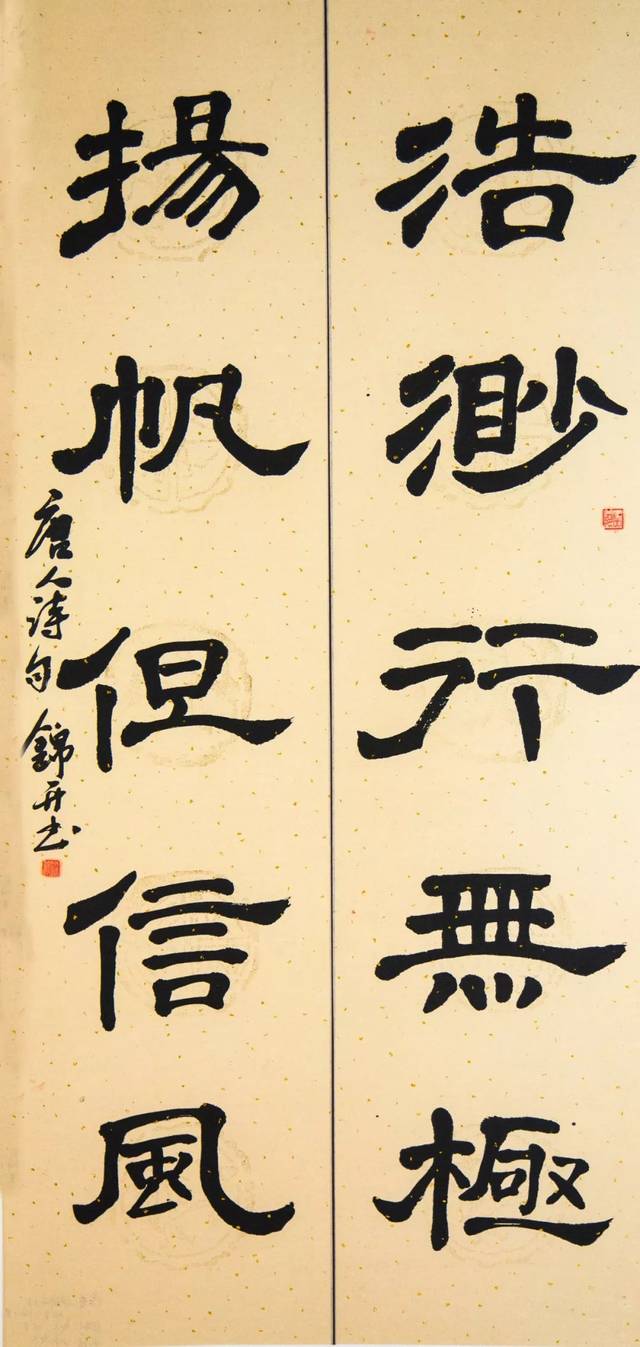 浩渺行無極
揚帆但信風
唐人诗句 錦开书